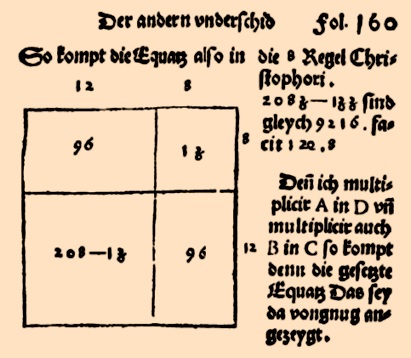 Der andern vnderschid Fol. 160
So kompt die Equatz also in die 8 Regel Chri=
stophori.
12 8
208ʒ—1ʒʒ sind
gleych 9216. fa=
cit 8
96 1ʒ 8
208—1ʒ 96 12
Deñ ich multi=
plicir A in D vñ
multiplicir auch
B in C so kompt
denn die gesetzte
Equatz Das sey
da vongnug an=
gezeygt.